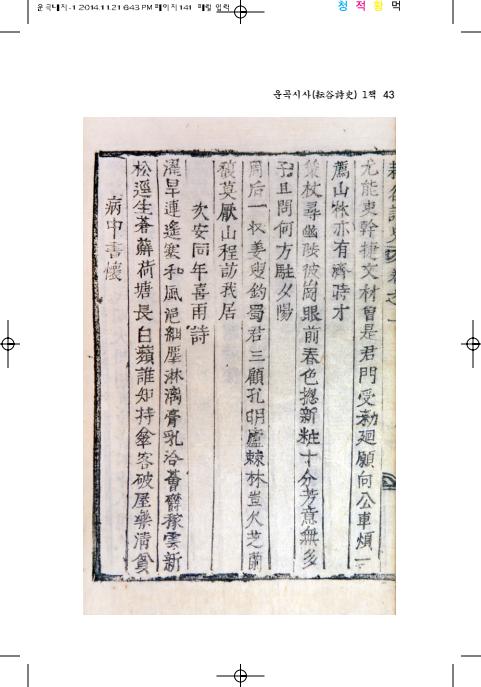 운곡내지-1 2014.11.21 6:43 PM 페이지141
청 적 황 먹
운곡시사(耘谷詩史) 1책 43
耘谷詩史卷之一
尤能吏幹捷文材曾是君門受勑廻願向公車煩一
薦山林亦有濟時才
策杖尋幽陟彼崗眼前春色摠新粧十分芳意無多
子且問何方駐夕陽
周后一收姜叟釣蜀君三顧孔明廬棘林豈欠芝蘭
馥莫厭山程訪我居
次安同年喜雨詩
濯旱連遙寨和風浥細塵淋漓膏乳洽薈蔚稼雲新
松逕生蒼蘚荷塘長白蘋誰知持傘客破屋樂清貧
病中書懷